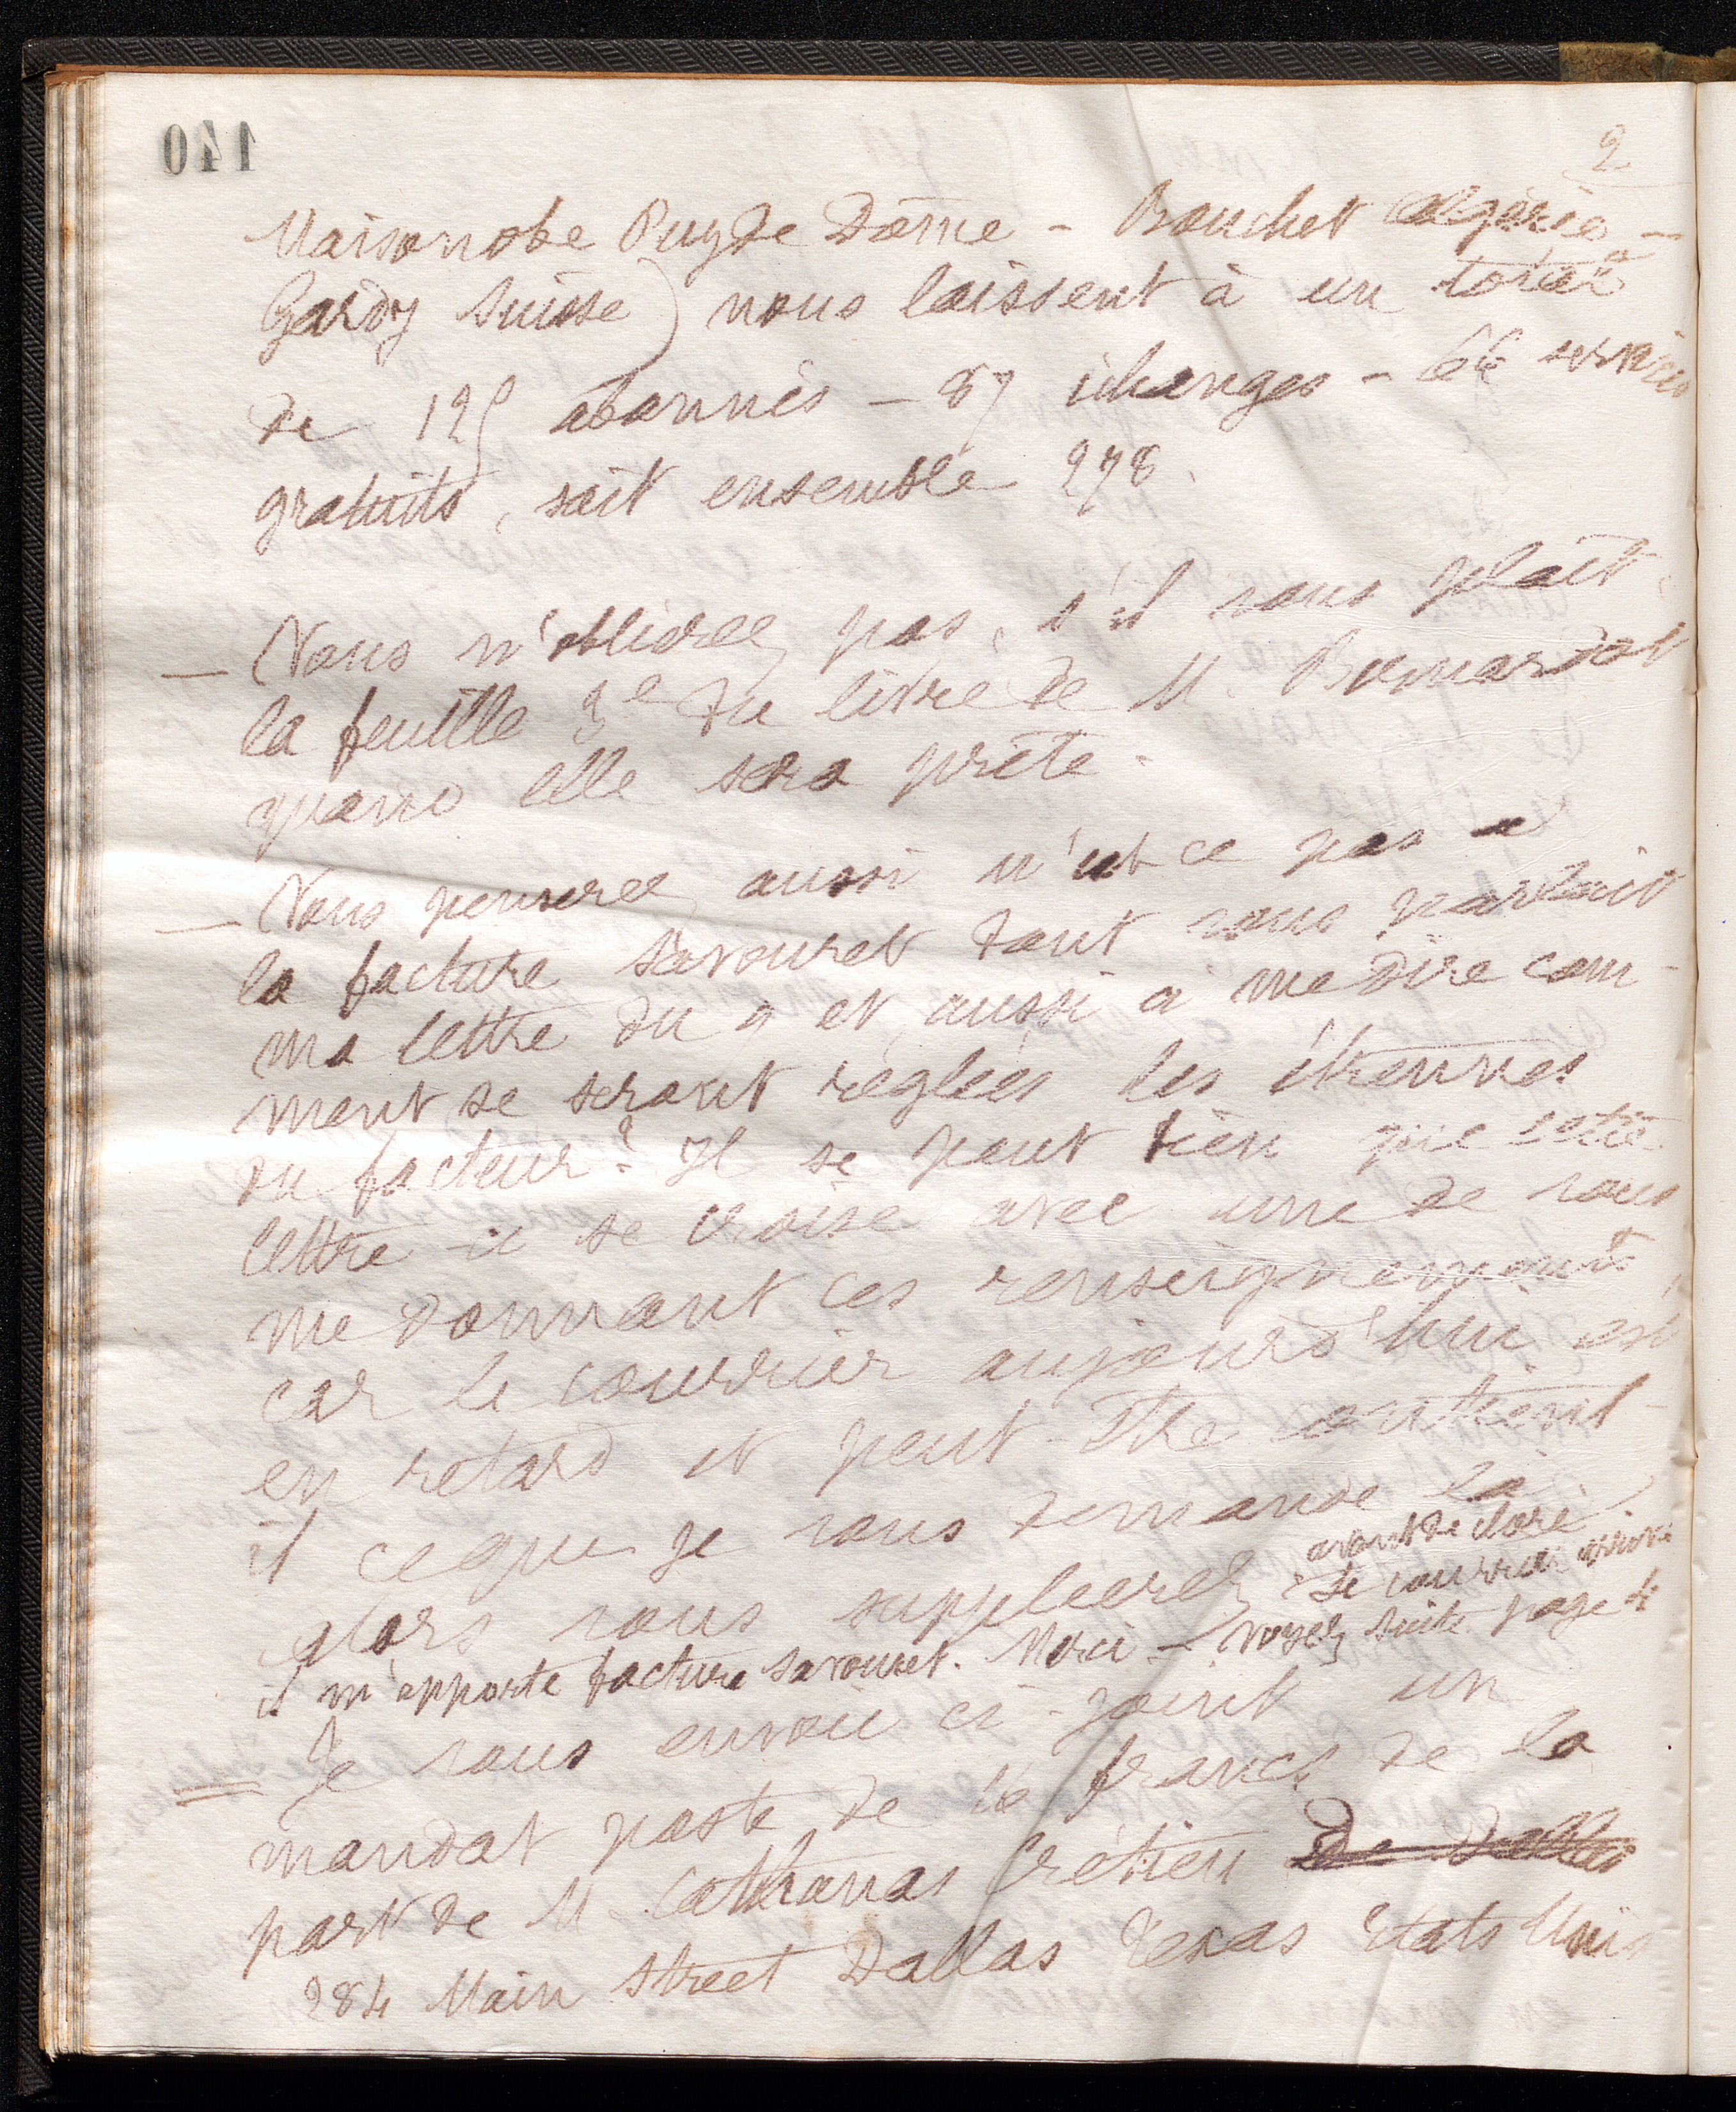 140
2
Maisonobe Puy de Dôme - Bouchet Algérie -
Gardy Suisse) nous laissent à un total
de 125 abonnés - 87 échanges - 66 services
gratuits, soit ensemble 278.
— Vous n'oublierez pas, s'il vous plait,
la feuille 3e du livre de M. Bernardot
quand elle sera prête -
— Vous penserez aussi n'est-ce pas a
la facture Savouret dont vous parlait
ma lettre du 9 et aussi à me dire com-
ment se seront réglées les étrennes
du facteur? Il se peut bien que cette
lettre-ci se croise avec une de vous
me donnant ces renseignements
car le courrier aujourd'hui est
en retard et peut-être contient-
il ce que je vous demande là
alors vous suppléerez avant de clore
le courrier arrive
il m'apporte facture Savouret. Merci - voyez suite page 4
= Je vous envoie ci-joint un
mandat poste de francs de la
part de M. Cothranas Crétien De Dallas
284 Main Street Dallas Texas Etats Unis